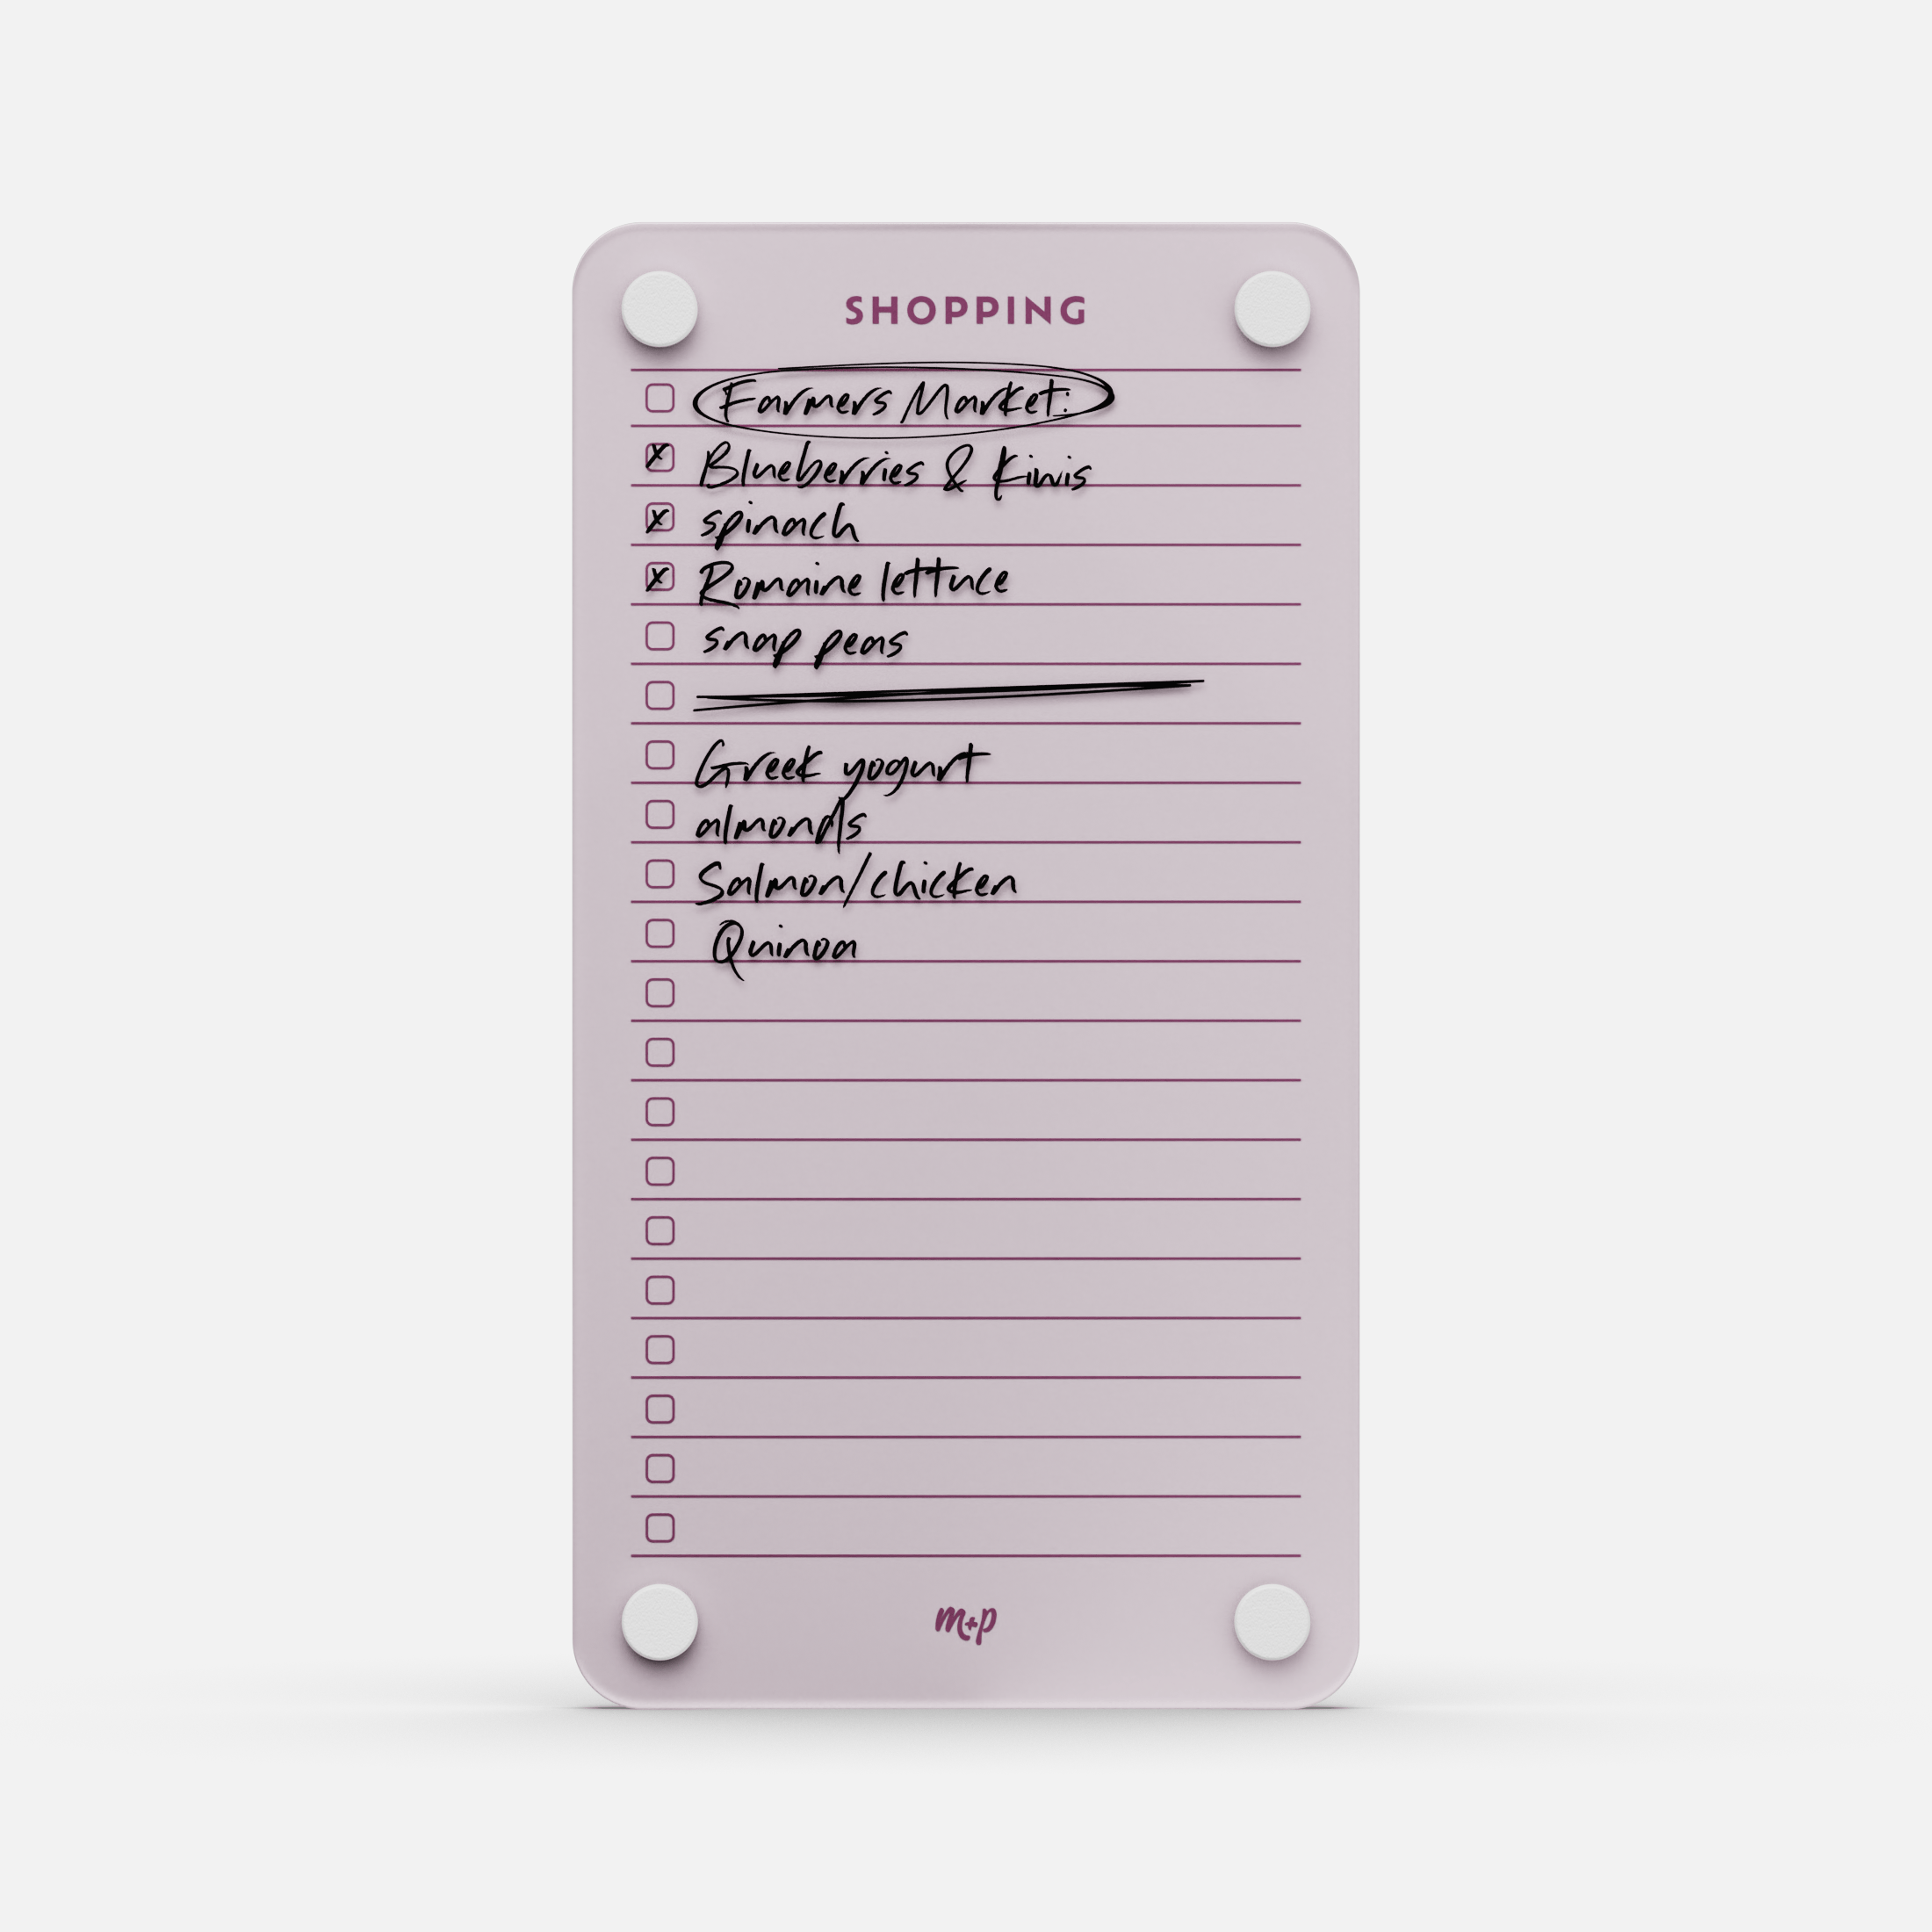 SHOPPING
Farmers Market:
Blueberries & Kiwis
spinach
Romaine lettuce
snap peas
Greek yogurt
almonds
Salmon/chicken
Quinoa
m+p